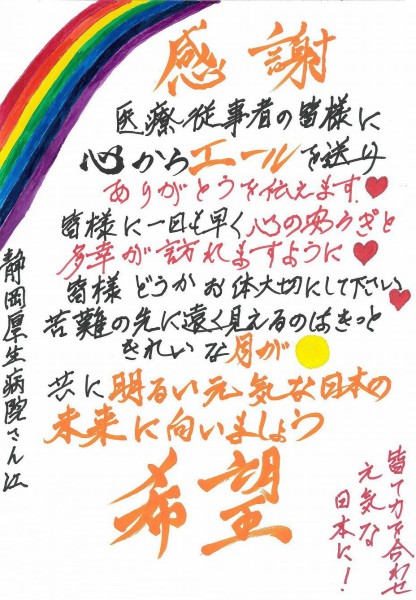 感謝
医療従事者の皆様に
心からエールを送り
ありがとうを伝えます
皆様に一日も早く心の安らぎと
多幸が訪れますように
皆様どうかお体大切にして下さい
苦難の先に遠く見えるのはきっと
きれいな月が
共に明るい元気な日本の
未来に向いましょう
希望
静岡厚生病院さん江
皆で力を合わせ
元気な
日本に!